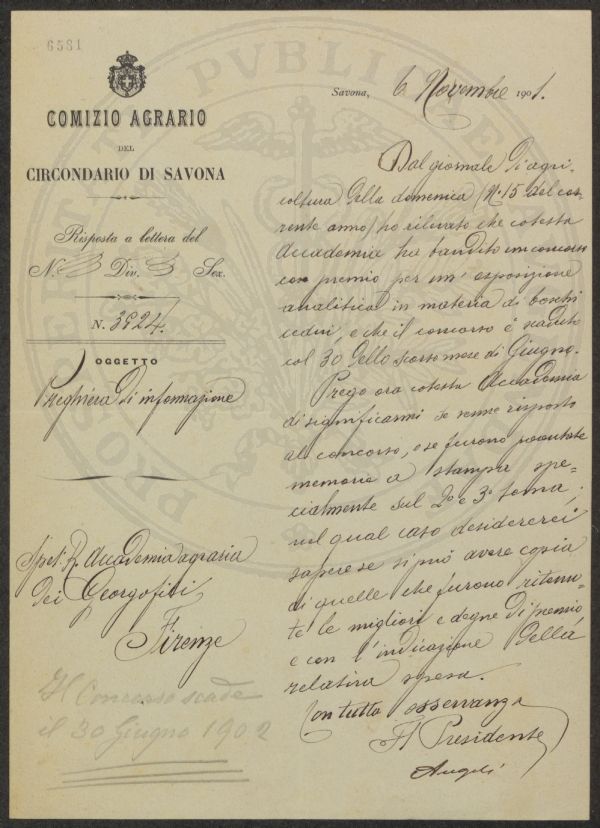 6581
COMIZIO AGRARIO
DEL
CIRCONDARIO DI SAVONA
Risposta a lettera del
N. 3 Div. 3 Sez.
N. 3824.
OGGETTO
Preghiera di informazione
Spet. R. Accademia agraria
dei Georgofili
Firenze
Il Concorso scade
il 30 Giugno 1902
Savona, 6 Novembre 1901.
Dal giornale di agri-
coltura della domenica (N. 15 del cor-
rente anno) ho rilevato che cotesta
Accademia ha bandito un concorso
con premio per un' esposizione
analitica in materia di boschi
cedui, e che il concorso è scaduto
col 30 dello scorso mese di Giugno.
Prego ora cotesta Accademia
di significarmi se venne risposto
al concorso, e se furono presentate
memorie a stampa spe-
cialmente sul 2º e 3º tema,
nel qual caso desidererei
sapere se si può avere copia
di quelle che furono ritenu-
te le migliori e degne di premio
e con l'indicazione della
relativa spesa.
Con tutta osservanza
Il Presidente
PRO
PVBLICAE